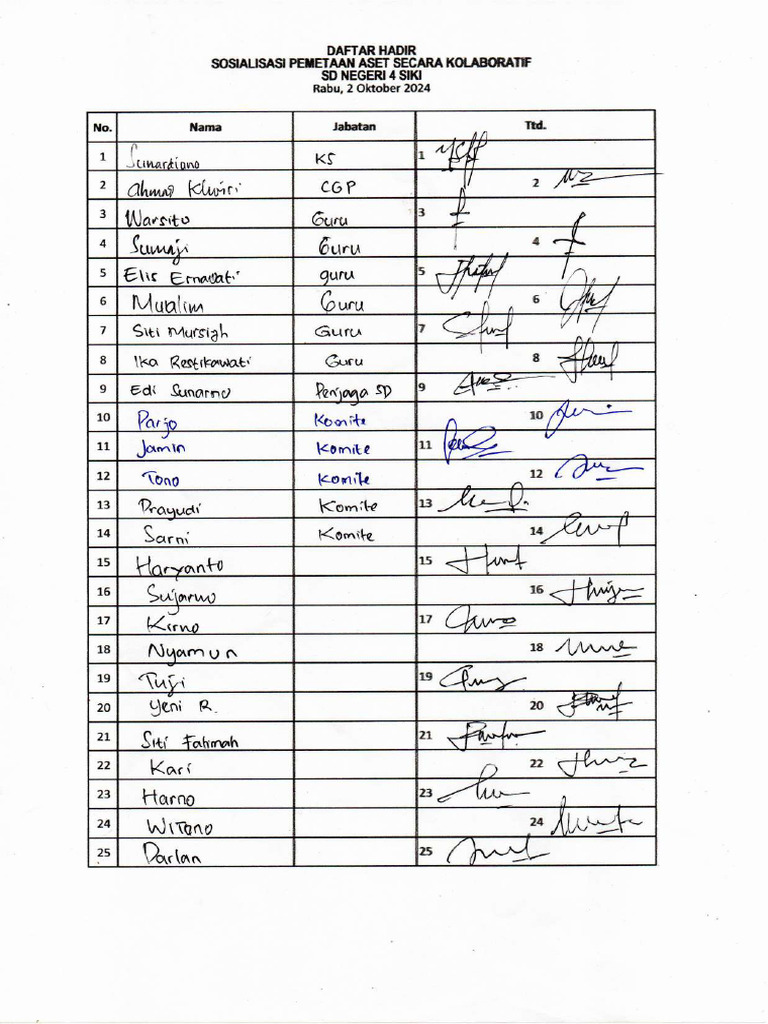 DAFTAR HADIR
SOSIALISASI PEMETAAN ASET SECARA KOLABORATIF
SD NEGERI 4 SIKI
Rabu, 2 Oktober 2024
No. Nama Jabatan Ttd.
1 Sunardiono KS 1
2 Ahmad Khoiri CGP 2
3 Warsito Guru 3
4 Sumaji Guru 4
5 Elis Ernawati guru 5
6 Mualim Guru 6
7 Siti Mursiah Guru 7
8 Ika Restikawati Guru 8
9 Edi Sunarno Penjaga SD 9
10 Parjo Komite 10
11 Jamin Komite 11
12 Tono Komite 12
13 Prayudi Komite 13
14 Sarni Komite 14
15 Haryanto 15
16 Sujarno 16
17 Kirno 17
18 Nyamun 18
19 Tuji 19
20 Yeni R. 20
21 Siti Fatimah 21
22 Kari 22
23 Harno 23
24 Witono 24
25 Darlan 25